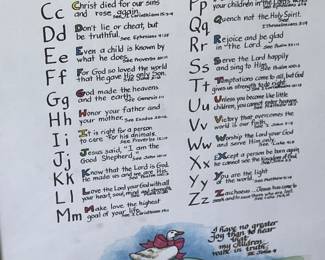 Cc Christ died for our sins
and rose again.
Dd Don't lie or cheat, but
be truthful. See Ephesians 4:25
Ee Even a child is known by
what he does.
Ff For God so loved the world
that He gave His only Son.
Gg God made the heavens
and the earth. See Genesis 1:1
Hh Honor your father and
your mother. See Exodus 20:12
Ii It is right for a person
to care for his animals.
See Proverbs 12:10
Jj Jesus said, "I am the
Good Shepherd." See John 10:11
Kk Know that the Lord is God.
He made us and we are His.
Ll Love the Lord your God with all
your heart, soul, mind and strength.
Mm Make love the highest
goal of your life.
Pp
Qq Quench not the Holy Spirit.
Rr Rejoice and be glad
in the Lord.
Ss Serve the Lord happily
and sing to Him.
Tt Temptations come to all, but God
gives us strength to do right.
Uu Unless you become like little
children, you cannot enter heaven.
Vv Victory that overcomes the
world is our Faith.
Ww Worship the Lord your God
and serve Him only.
Xx Except a person be born again
he cannot see the kingdom of God.
Yy You are the light
of the world.
Zz Zacchaeus
I have no greater
Joy than to hear
that my children
walk in truth.